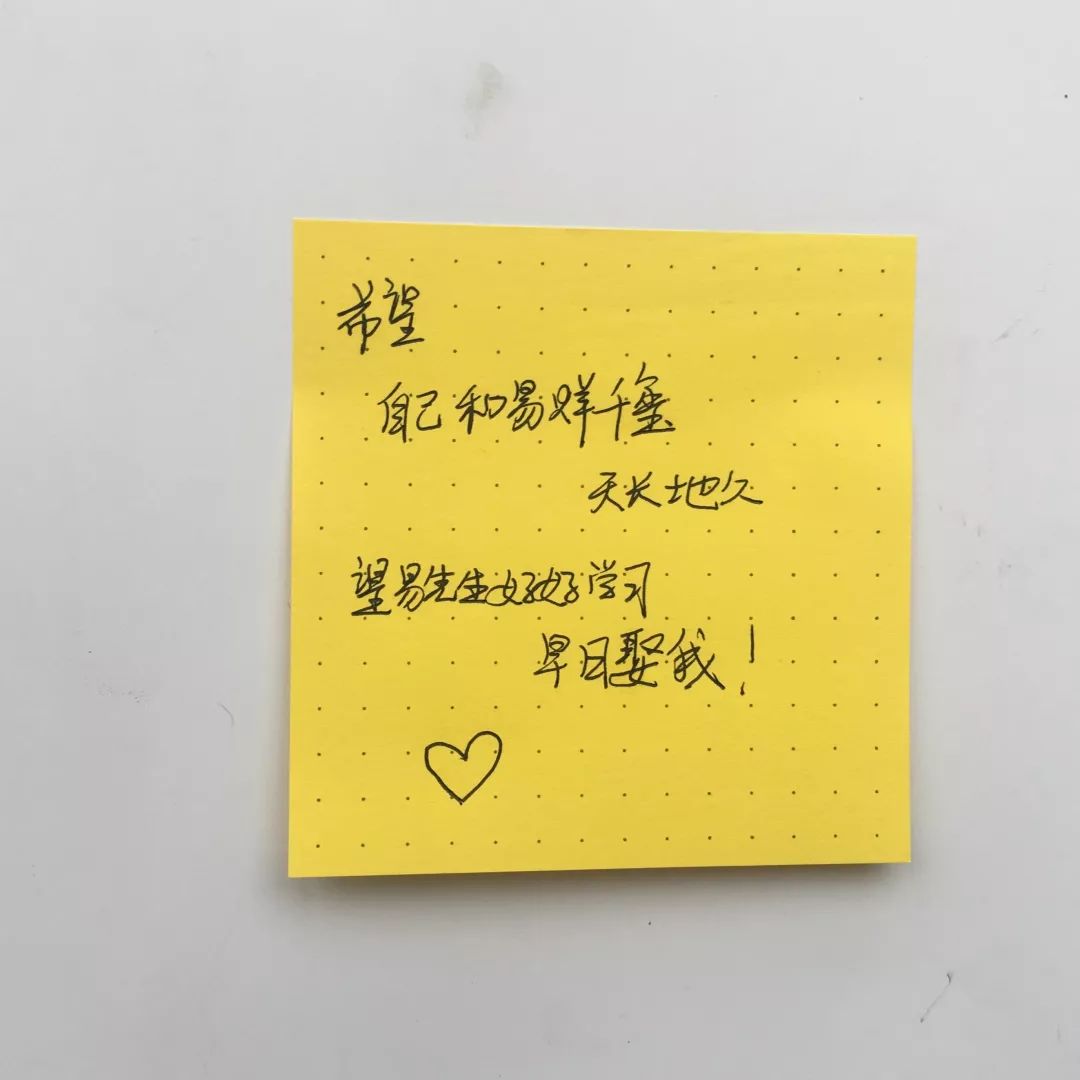 希望
自己和易烊千玺
天长地久
望易先生好好学习
早日娶我！